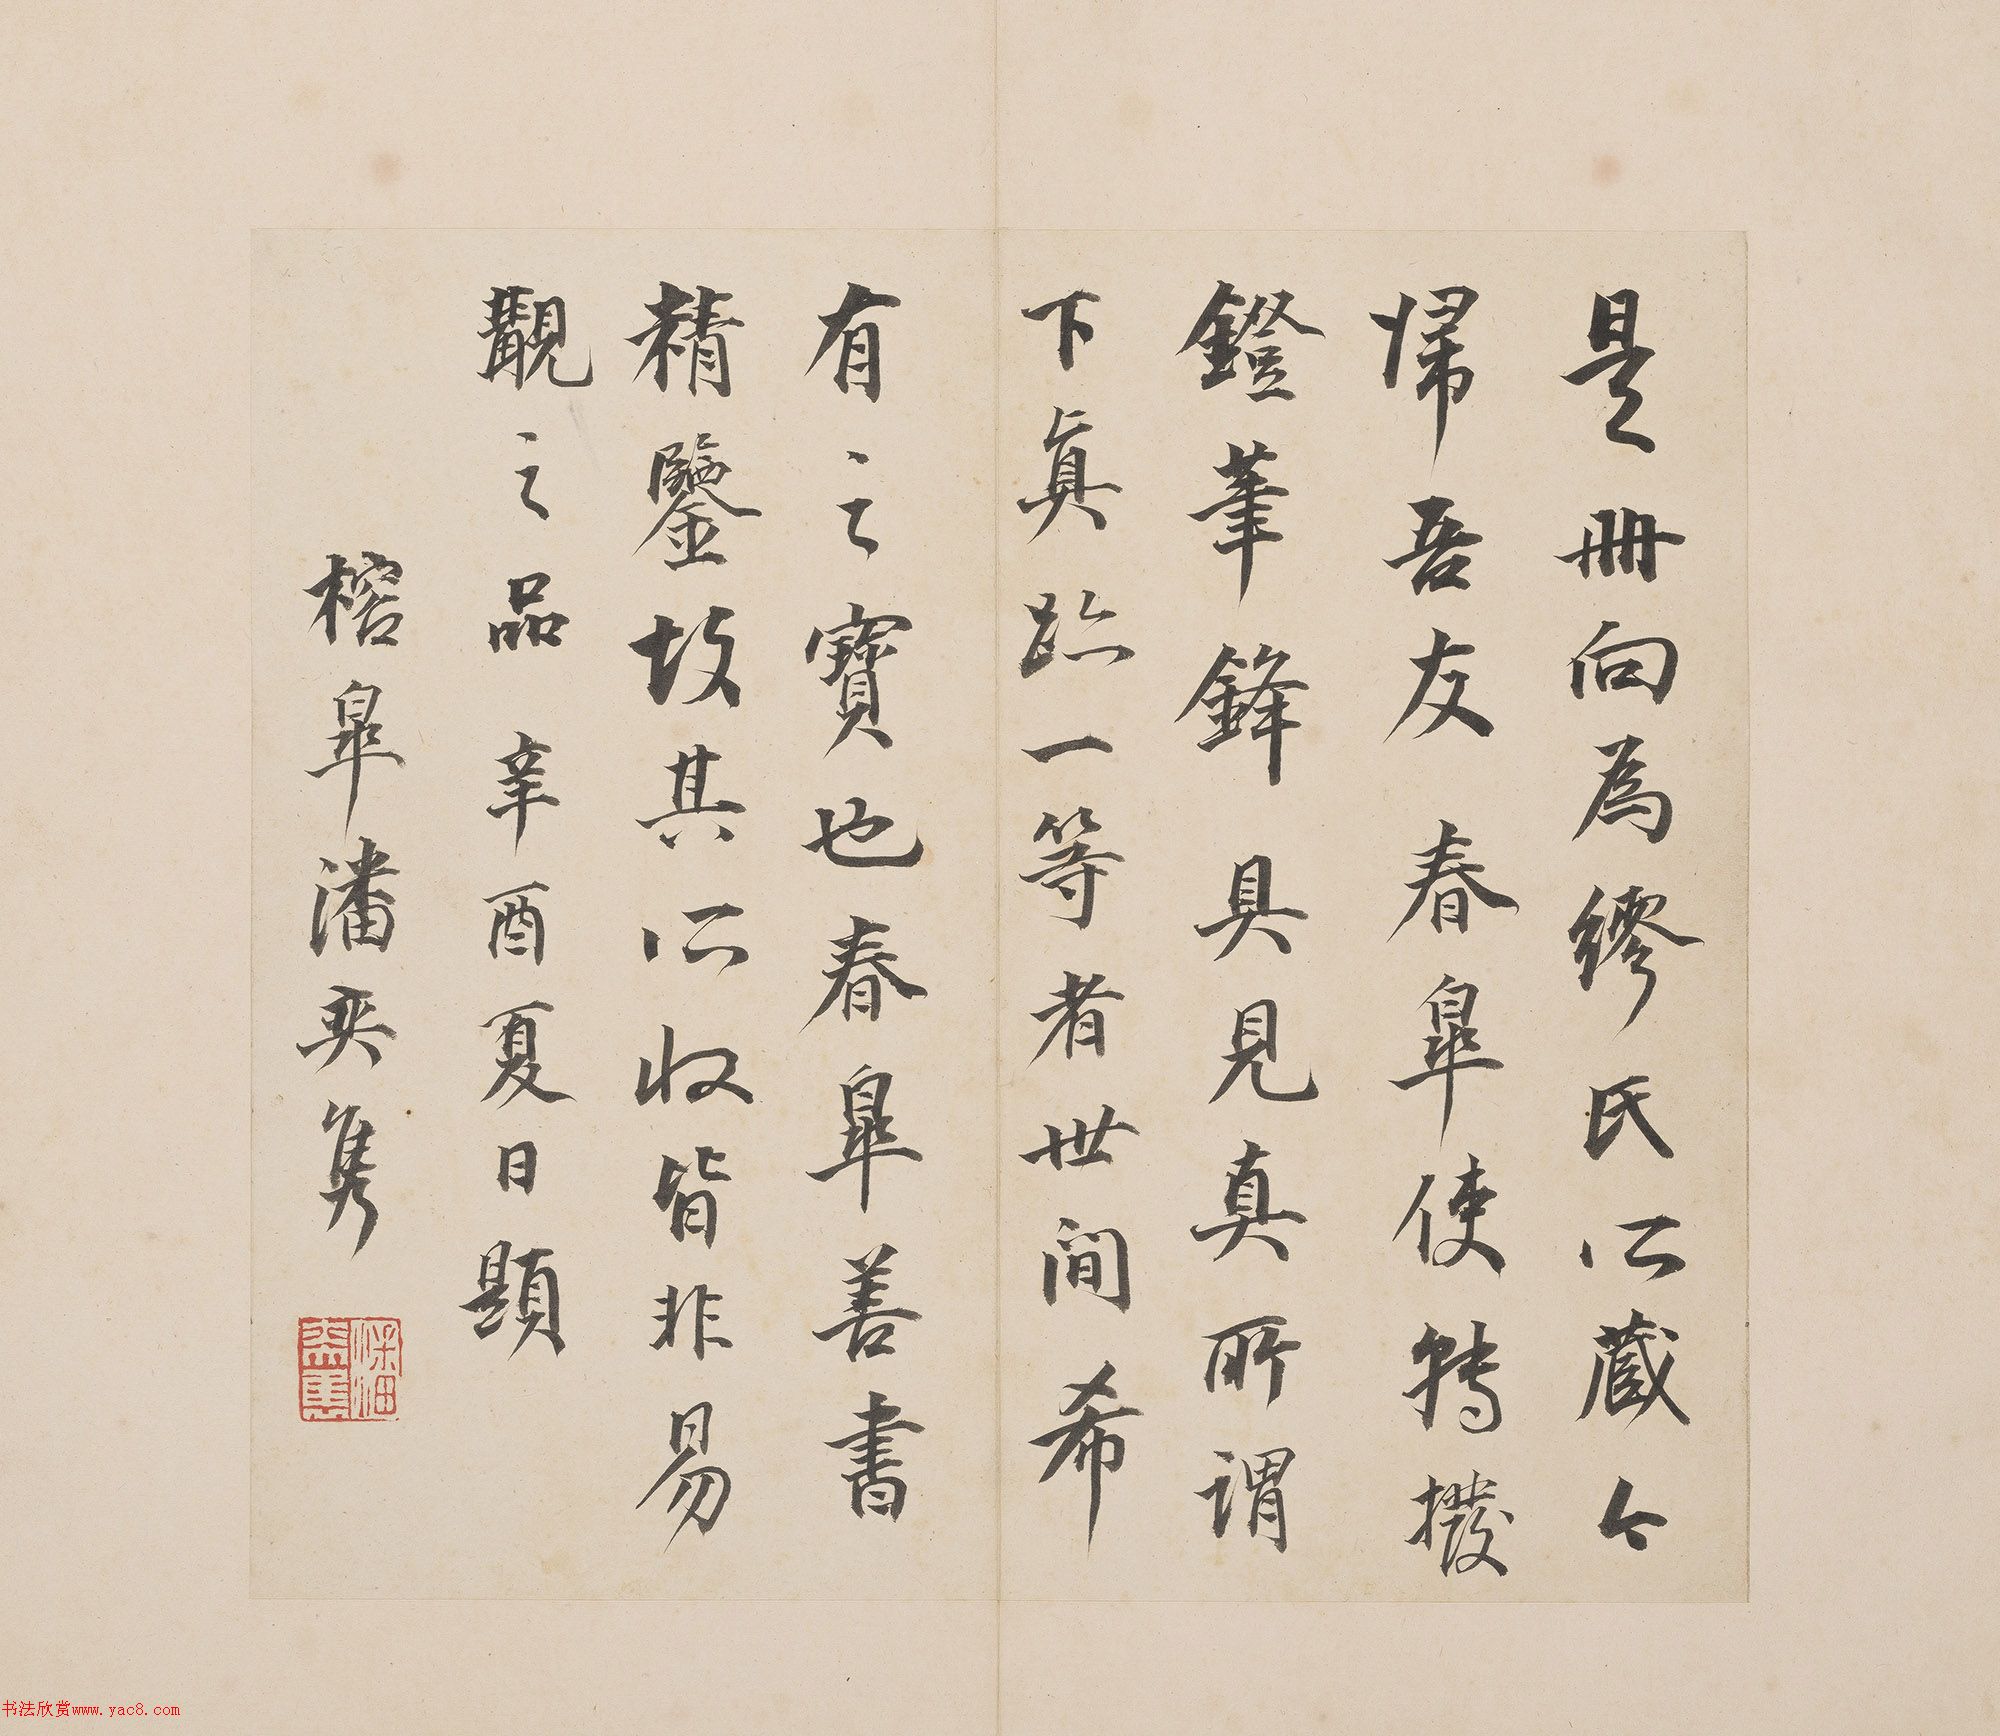 是冊向為繆氏所藏今
歸吾友春皐使轉撥
鐙筆鋒具見真所謂
下真跡一等者世間希
有之寶也春皐善書
精鑒故其所收皆非易
觀之品辛酉夏日題
榕皐潘奕雋
书法欣赏www.yac8.com